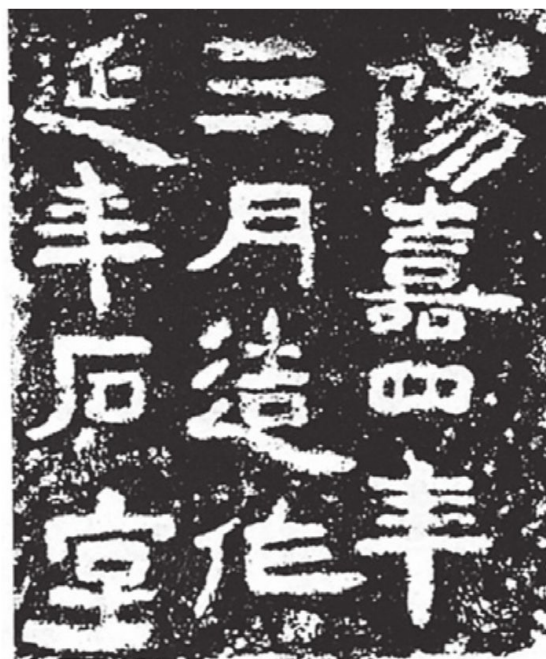 陽嘉四年
三月造作
延年石室